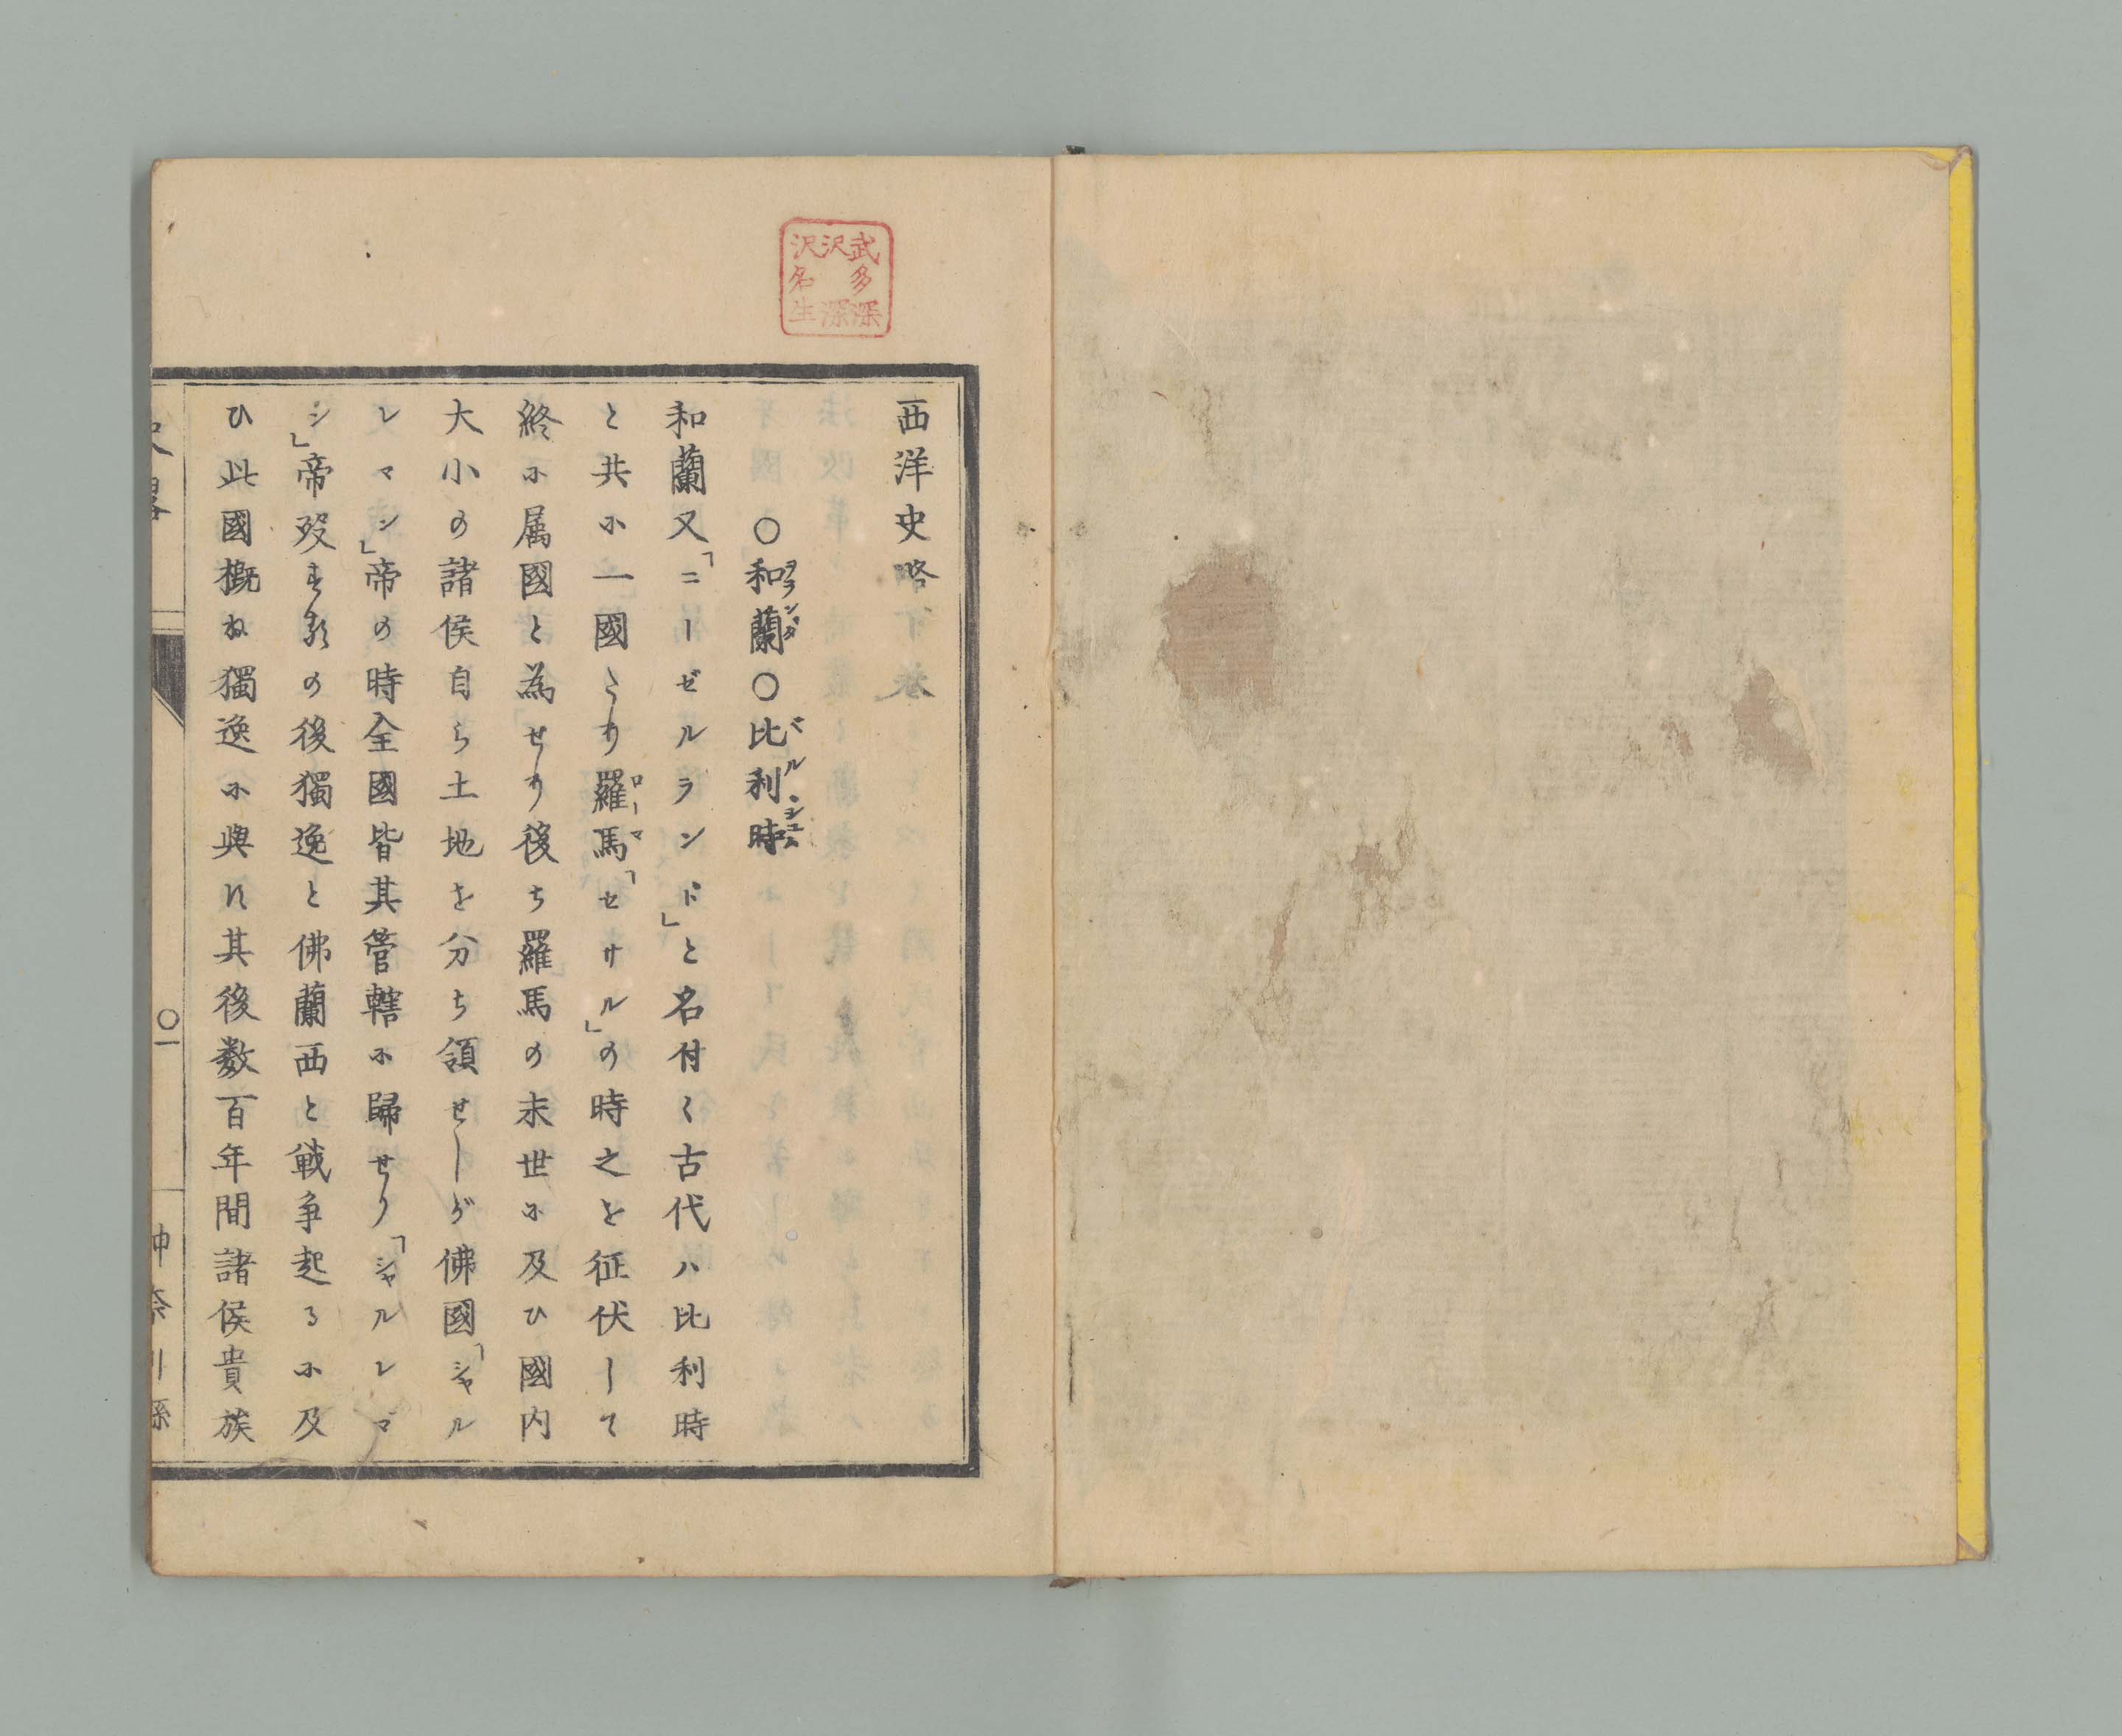 西洋史略下巻
○和蘭○比利時
和蘭又「ニーゼルランド」と名付く古代ハ比利時
と共に一國たり羅馬「セサル」の時之を征伏して
終に属國と為せり後ち羅馬の末世に及ひ國内
大小の諸侯自ら土地を分ち領せしが佛國「シャル
レマン」帝の時全國皆其管轄に歸せり「シャルレマ
ン」帝歿するの後獨逸と佛蘭西と戦争起るに及
ひ此國概ね獨逸に與に其後数百年間諸侯貴族
史畧
〇一
神奈川縣
武多深
沢深
沢名生